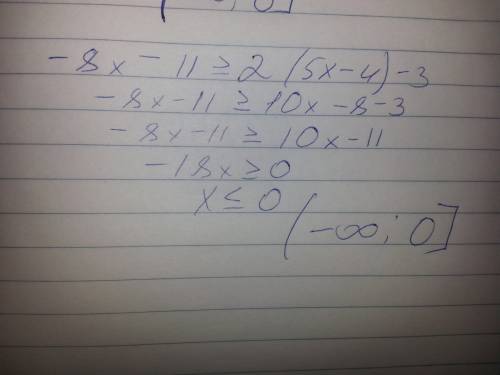 ; 0]
-8x - 11 ≥ 2(5x-4)-3
-8x-11 ≥ 10x-8-3
-8x-11 ≥ 10x-11
-18x ≥ 0
x ≤ 0
(-∞; 0]